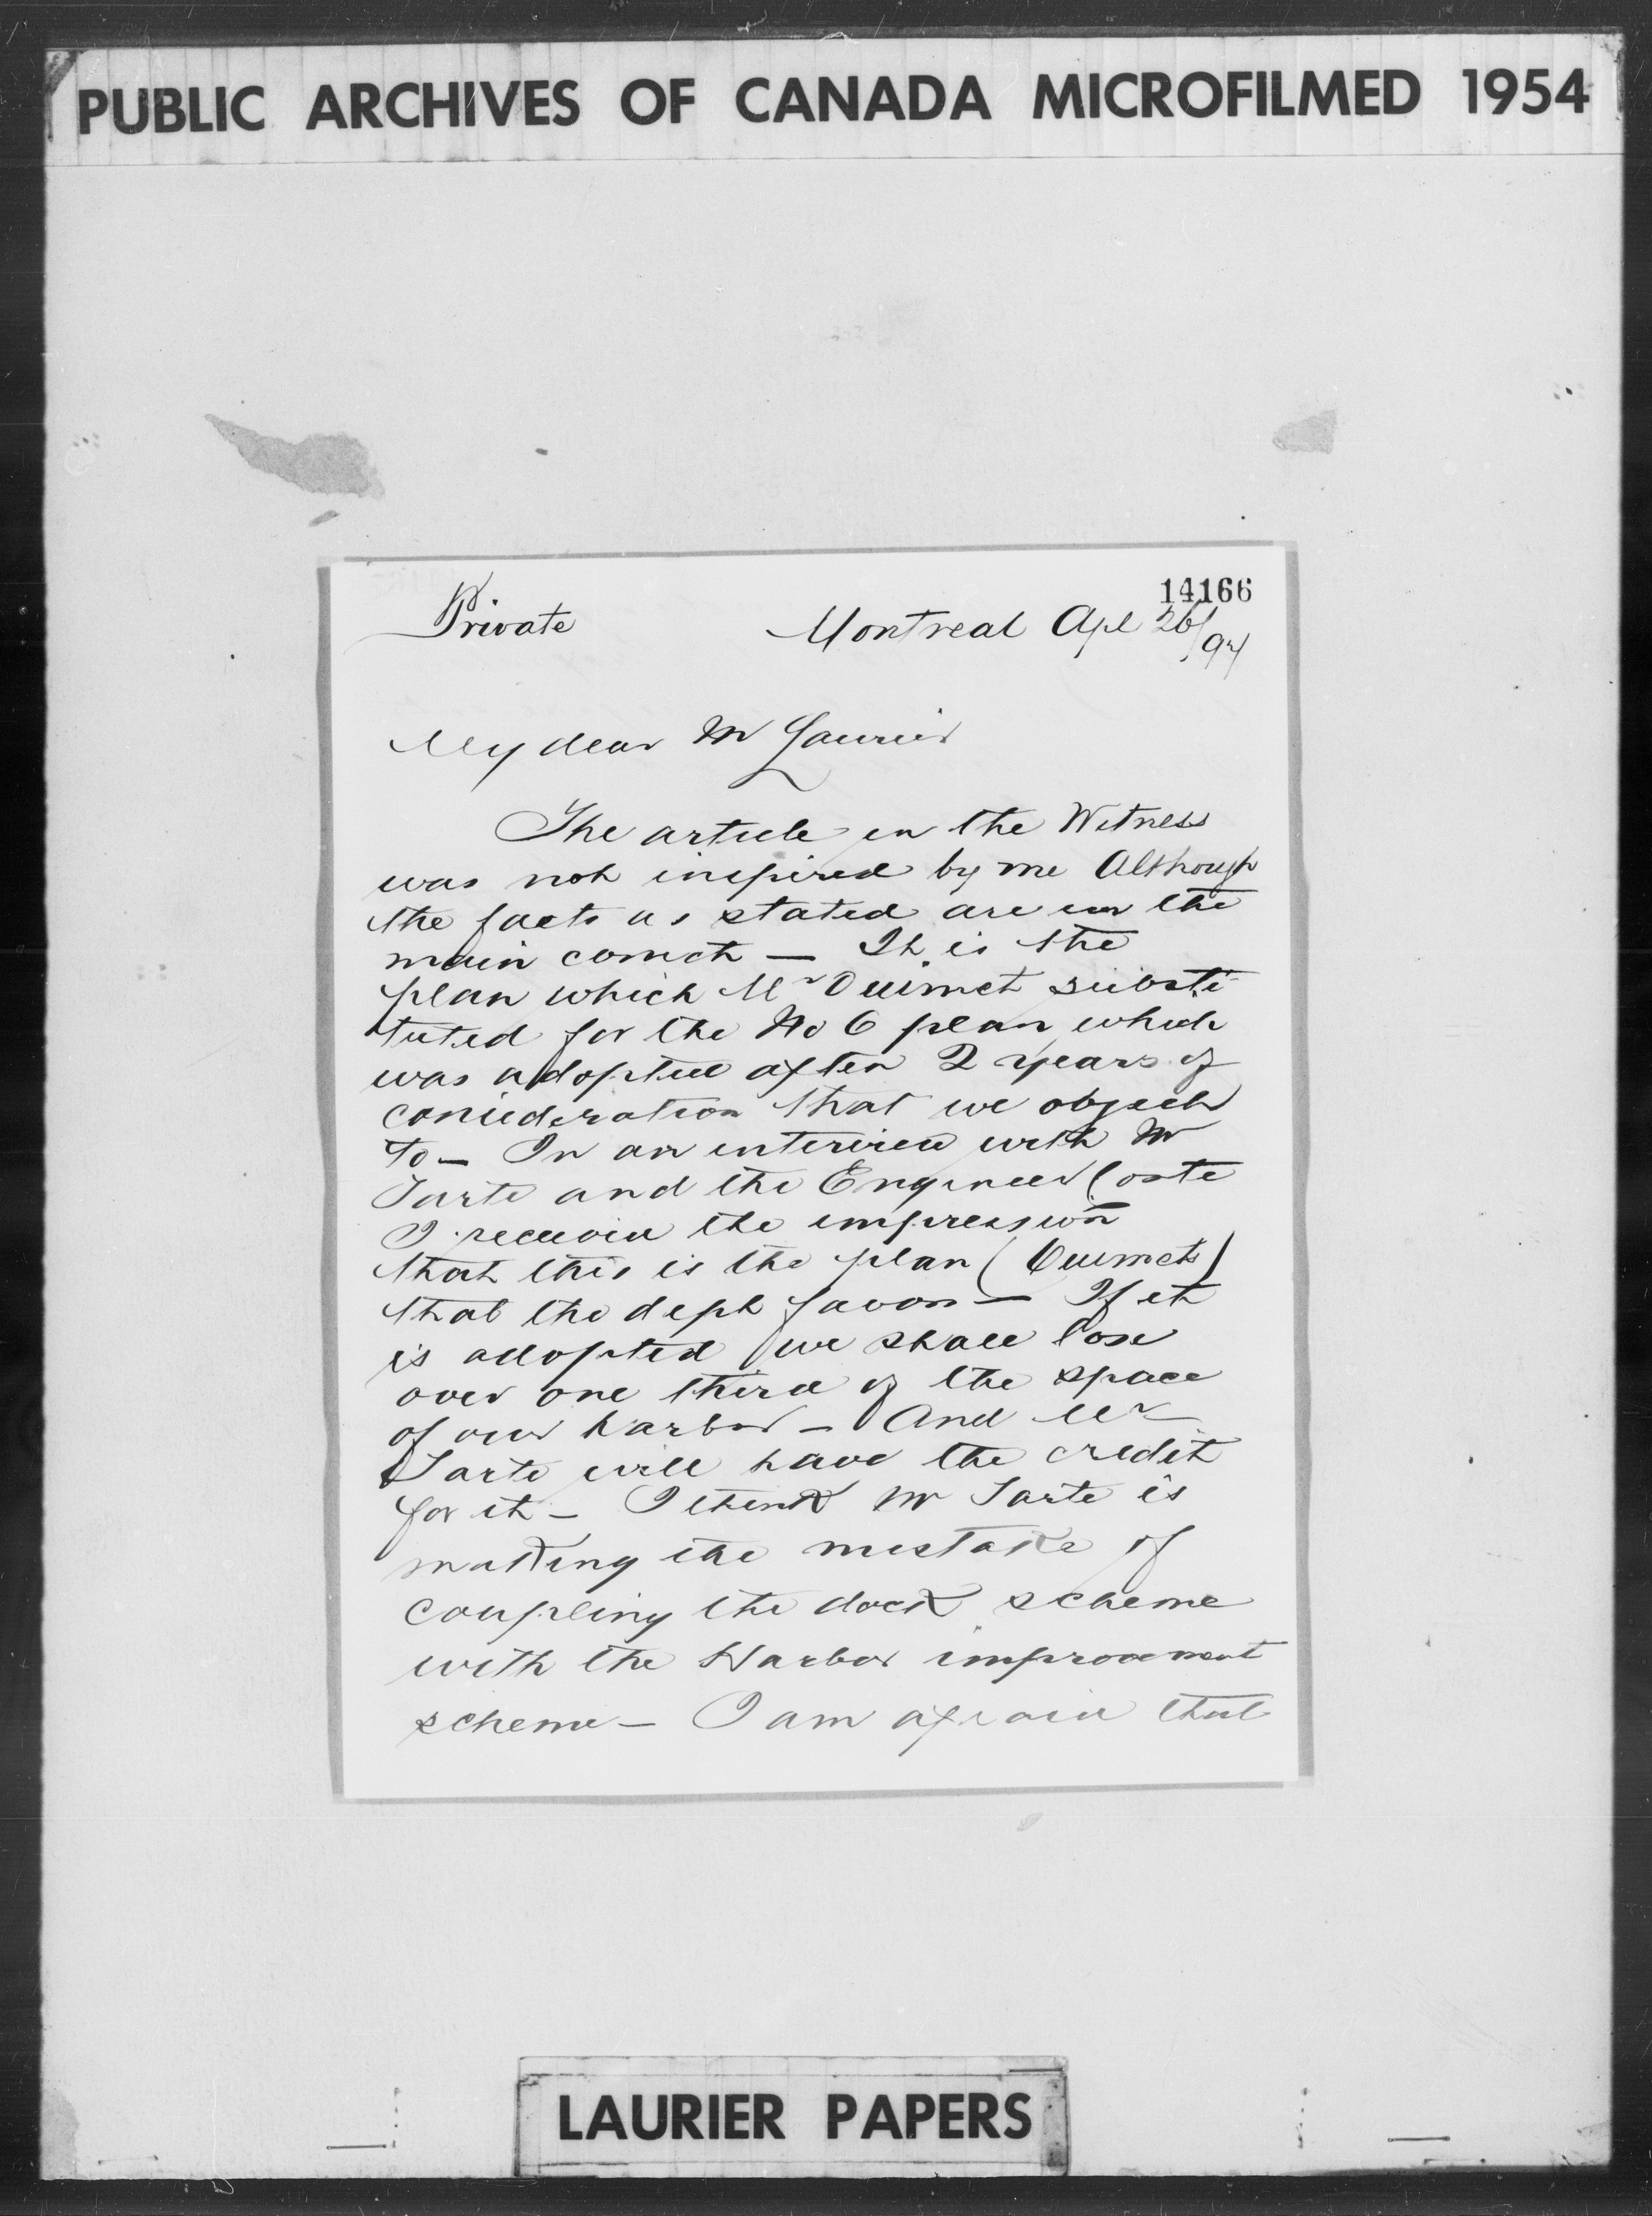 PUBLIC ARCHIVES OF CANADA MICROFILMED 1954
14166
Private
Montreal Apl 26/97
My dear Mr Laurier
The article in the Witness
was not inspired by me Although
the facts as stated are in the
main correct — It is the
plan which Mr Ouimet substi-
tuted for the No 6 plan which
was adopted after 2 years of
consideration that we object
to — In an interview with Mr
Tarte and the Engineer Coste
I received the impression
that this is the plan (Ouimets)
that the dept favors — If it
is adopted we shall lose
over one third of the space
of our harbor — And Mr
Tarte will have the credit
for it — I think Mr Tarte is
making the mistake of
coupling the dock scheme
with the Harbor improvement
scheme — I am afraid that
LAURIER PAPERS